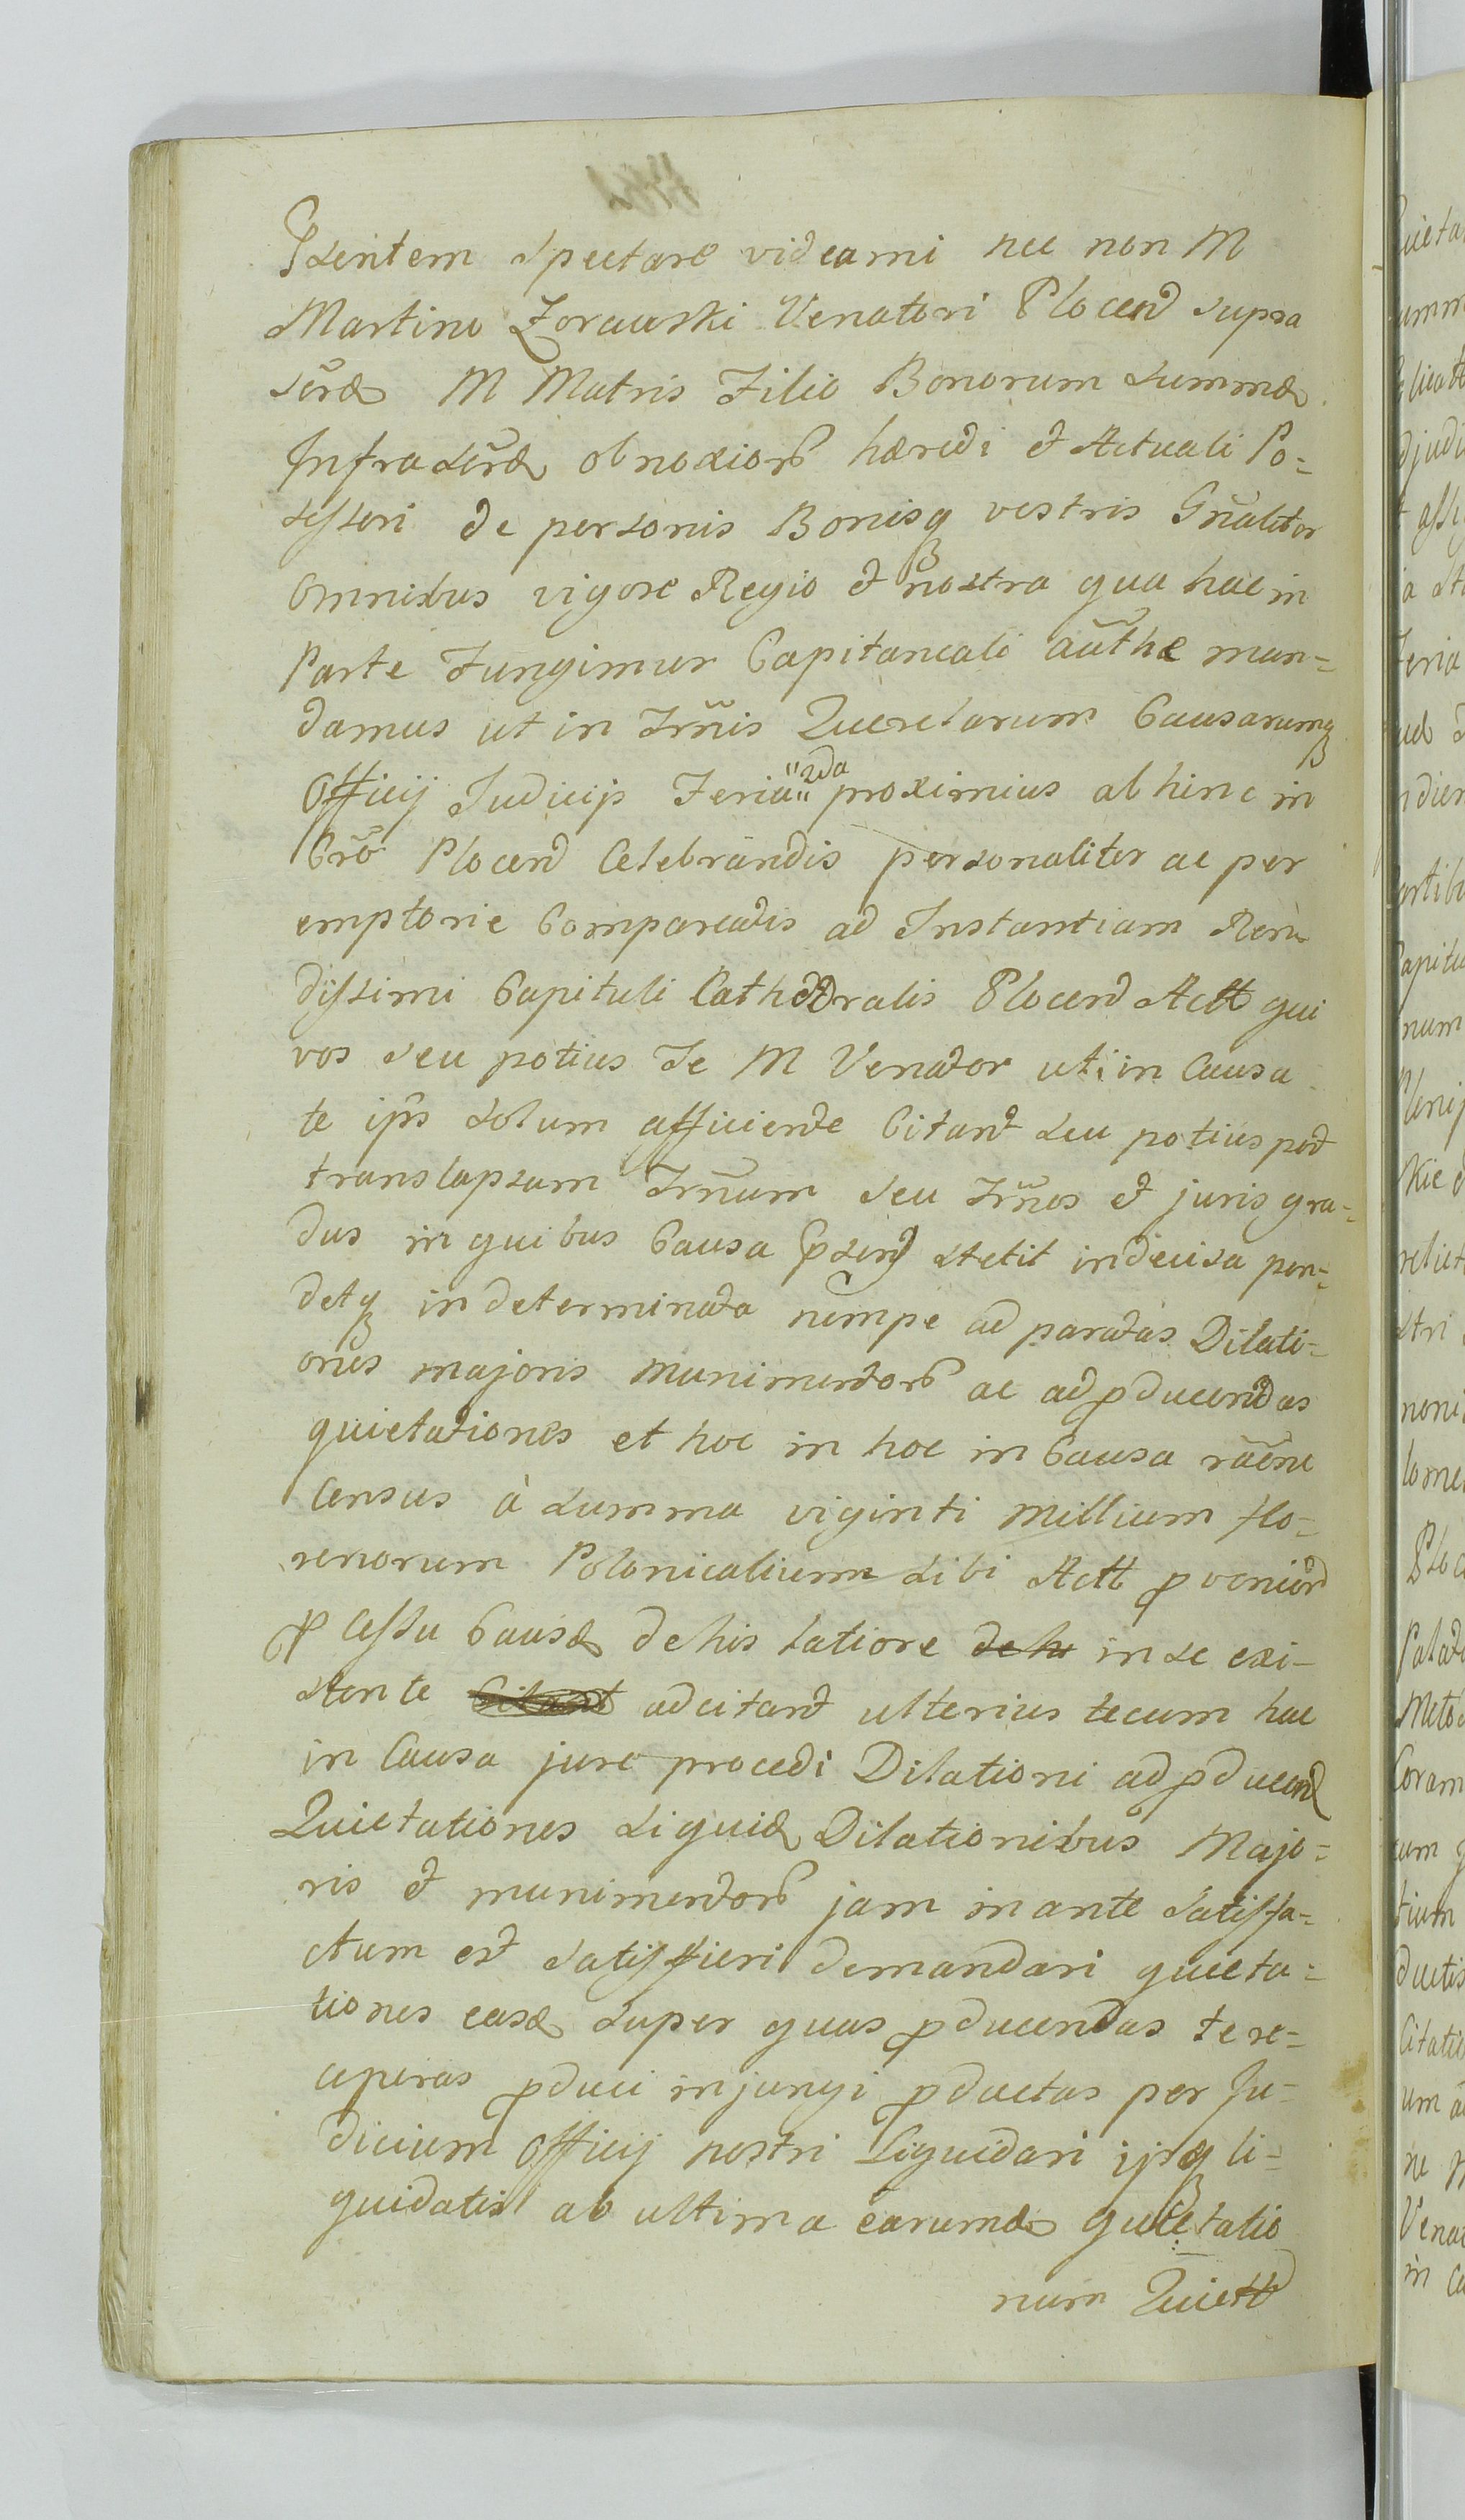 Psentem Spectare videami nec non M
Martino Zorawski Venatori Plocen supra
scrae M Matris Filio Bonorum summae
Infrascrae obnoxiorū haeredi et Actuali Po=
ssessori de personis Bonisq vestris Gnaliter
omnibus vigore Regio et nostra qua hac in
Parte Fungimur Capitaneali auth̃e man=
damus ut in Trm̃is Querelarum Causarumq
Officij Judicijs Feria "2da" proximius abhinc in
Cr̃o Plocen Celebrandis personaliter ac per
emptorie Compareatis ad Instantiam Reru
dissimi Capituli Cathedralis Plocen Actt qui
vos seu potius Te M Venator uti in Causa
te ips̃ Solum afficiente Citant seu potius post
translapsum Trm̃num seu Trm̃nos et juris gra=
dus in quibus Causa psens stetit indecisa pen=
detq indeterminata nempe ad paratas Dilati=
ones majoris munimentorū ac ad pducendas
quietationes et hoc in hoc in Causa raõne
Census à Summa viginti millium flo=
renorum Polonicalium sibi Actt pvenien
Pcessu Causae de his latiore de hi in se exi=
stente Citant adcitant ulterius tecum hac
in Causa jure procedi Dilationi ad pducend
Quietationes Siquid Dilationibus Majo=
ris et munimentorū jam in ante Satisfa=
ctum est Satisfieri demandari quieta=
tiones easd super quas pducendas te re=
ceperas pduci injungi pductas per Ju=
dicium Officij nostri Liquidari ijsq li=
quidatis ab ultima earumd quietatio
num Quiett